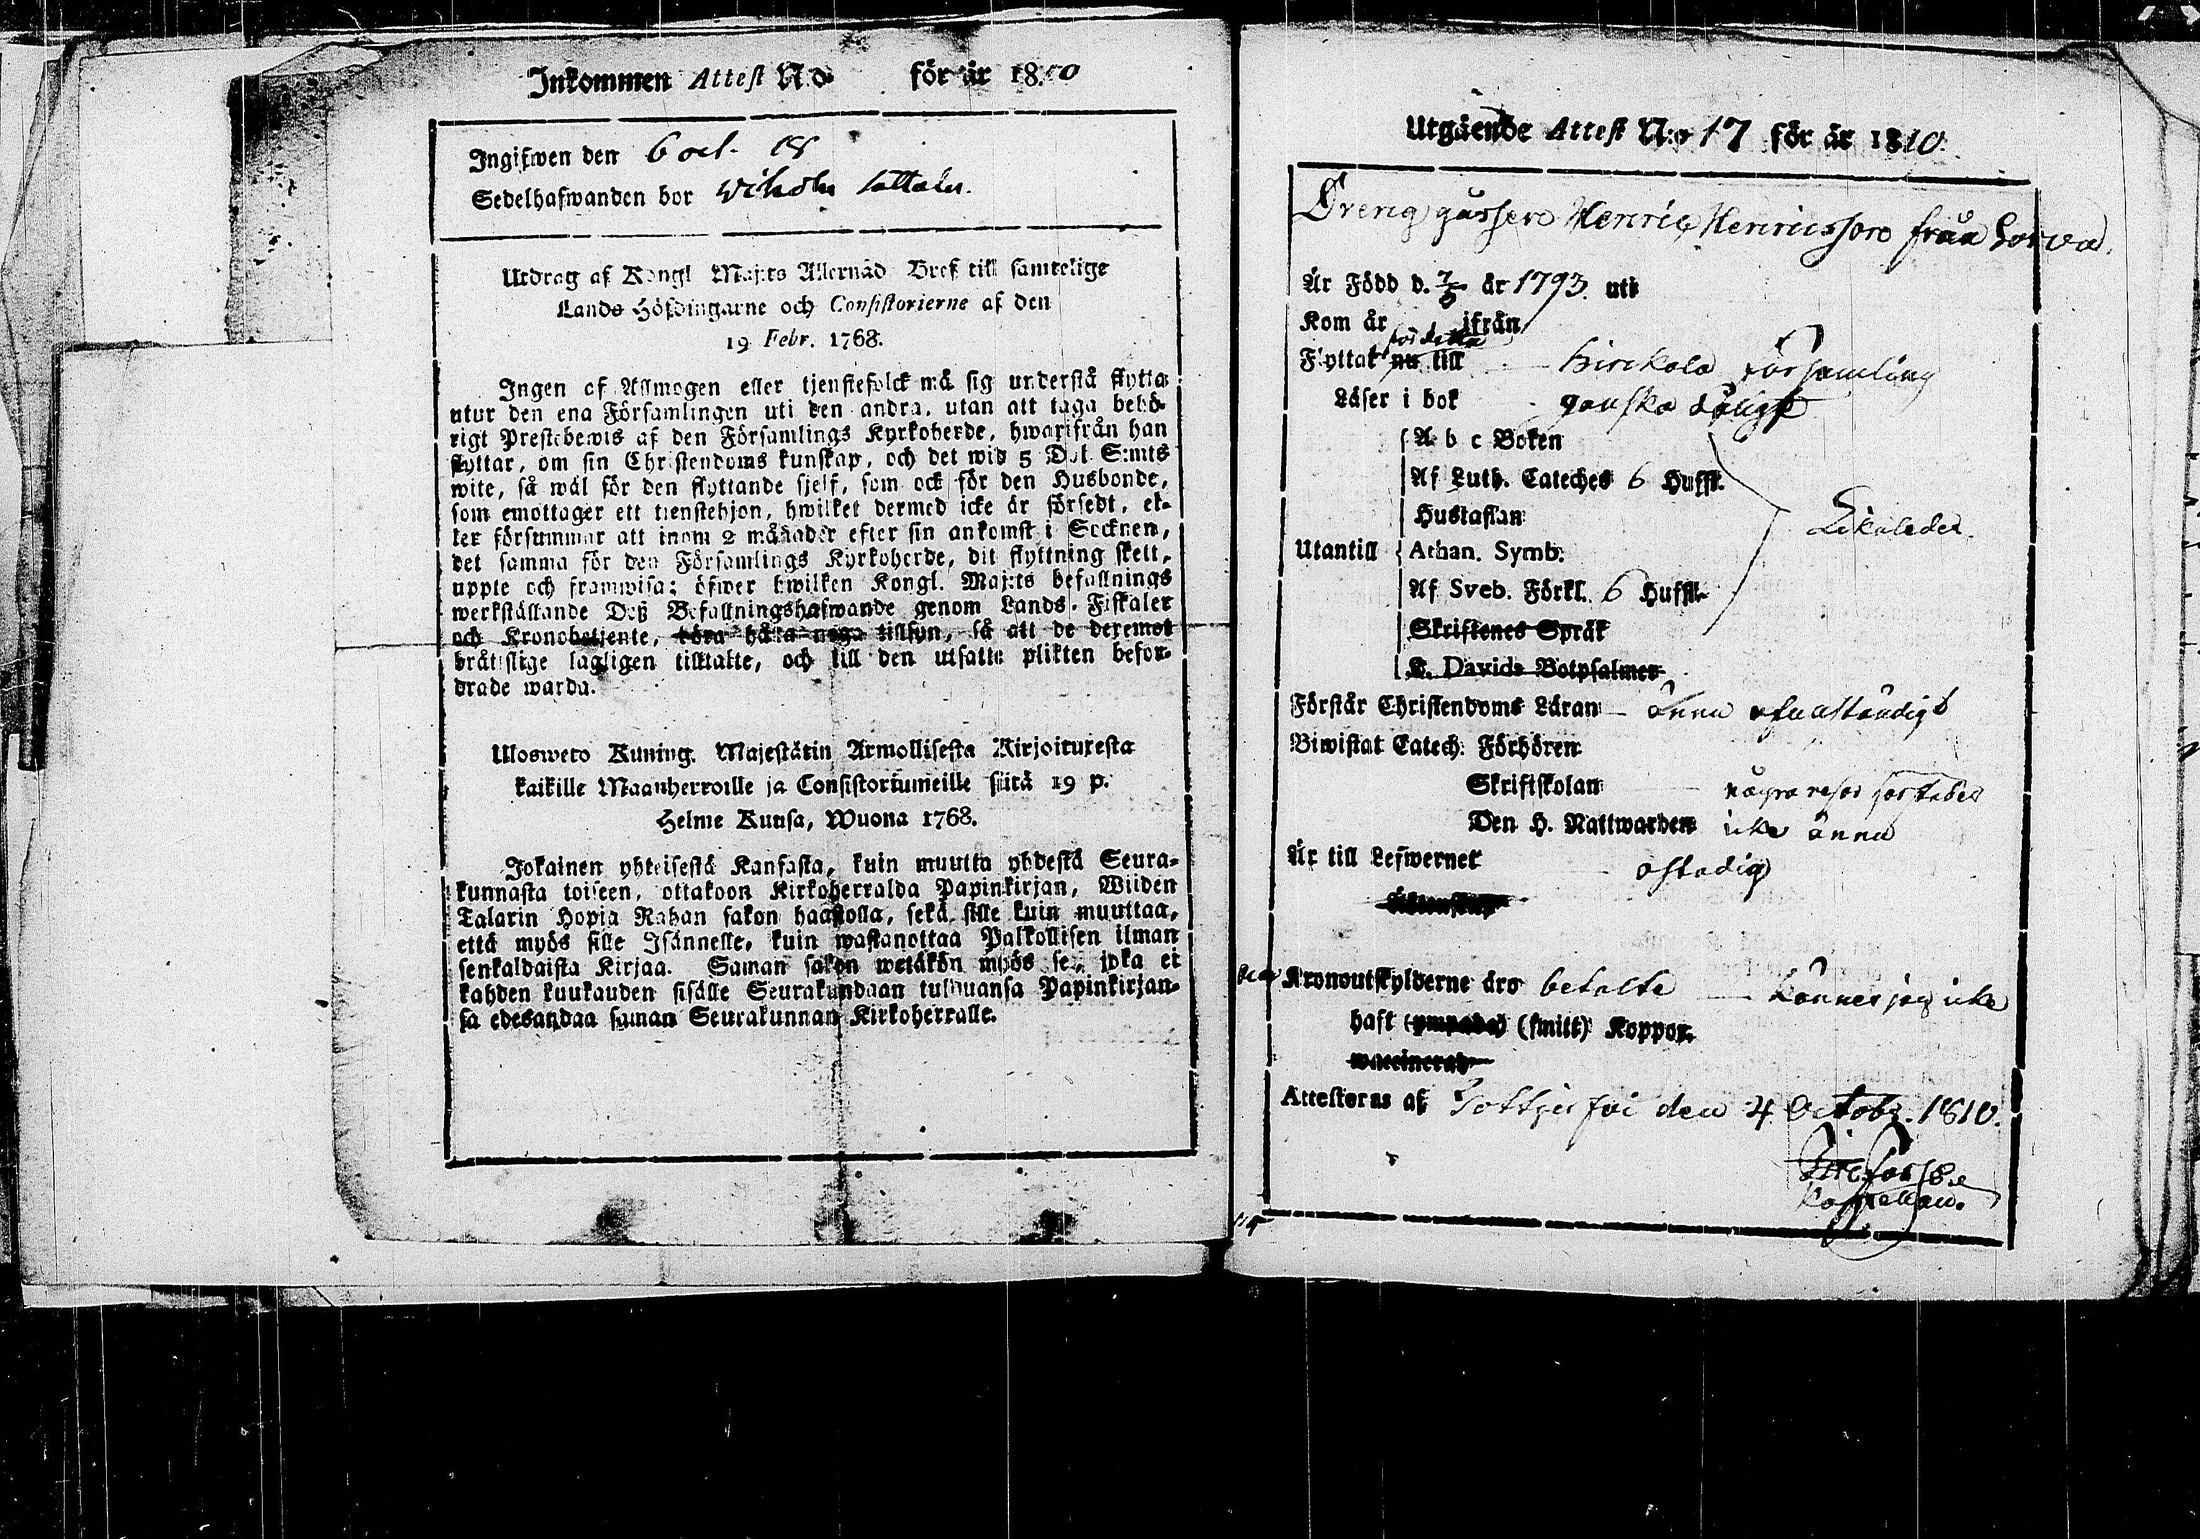 Inkommen Attest N:o för år 1810
Ingifwen den 6 oct.
Sedelhafwanden bor
Utdrag af Kongl Maj:ts Allernåd Bref till samtelige
Lands Höfdingarne och Consistorierne af den
19 Febr. 1768.
Ingen af Allmogen eller tjenstefolck må sig understå flytta
utur den ena Församlingen uti den andra, utan att taga behö-
rigt Prestebewis af den Församlings Kyrkoherde, hwarifrån han
flyttar, om sin Christendoms kunskap, och det wid 5 Dal S:mts
wite, så wäl för den flyttande sjelf, som ock för den Husbonde,
som emottager ett tienstehjon, hwilket dermed icke är försedt, el-
ler försummar att inom 2 månader efter sin ankomst i Socknen,
det samma för den Församlings Kyrkoherde, dit flyttning skett,
uppte och framwisa: öfwer hwilken Kongl. Maj:ts befallnings
werkställande Deß Befallningshafwande genom Lands-Fiskaler
och Kronobetjente, böra hålla noga tillsyn, så att de deremot
bråtslige lagligen tilltalte, och till den utsatte plikten befor-
drade warda.
Ulosweto Kuning. Majestätin Armollisesta Kirjoituxesta
kaikille Maanherroille ja Consistoriumeille siitä 19 p.
Helme Kuusa, Wuona 1768.
Jokainen yhteisestä Kansasta, kuin muutta yhdestä Seura-
kunnasta toiseen, ottakoon Kirkoherralda Papinkirjan, Wiiden
Talarin Hopia Rahan sakon haastolla, sekä sille kuin muuttaa,
että myös sille Isännelle, kuin wastanottaa Palkollisen ilman
senkaldaista Kirjaa. Saman sakon wetäkön myös se, joka ei
kahden kuukauden sisälle Seurakundaan tulduansa Papinkirjan-
sa edesandaa saman Seurakunnan Kirkoherralle.
Utgående Attest N:o 17 för år 1810.
Dreng gåssen Henric Henricsson från
Är Född d. 7/5 år 1793. uti
Kom år ifrån
Flyttat nu till Församling
Läser i bok ganska
A b c Boken
Af Luth. Cateches 6 Hufst.
Hustaflan
Utantill Athan. Symb:
Af Sveb. Förkl. 6 Hufst.
Skriftenes Språk
K. Davids Botpsalmer
Förstår Christendoms Läran ännu ofullständigt
Biwistat Catech: Förhören
Skriftskolan några resor
Den H. Nattwarden icke ännu
Är till Lefwernet ostadig
Kronoutskylderne äro betalte
haft (ympade) (smitt) Koppor.
waccinerad
Attesteras af den 4 Octobr. 1810.
Kappellan.